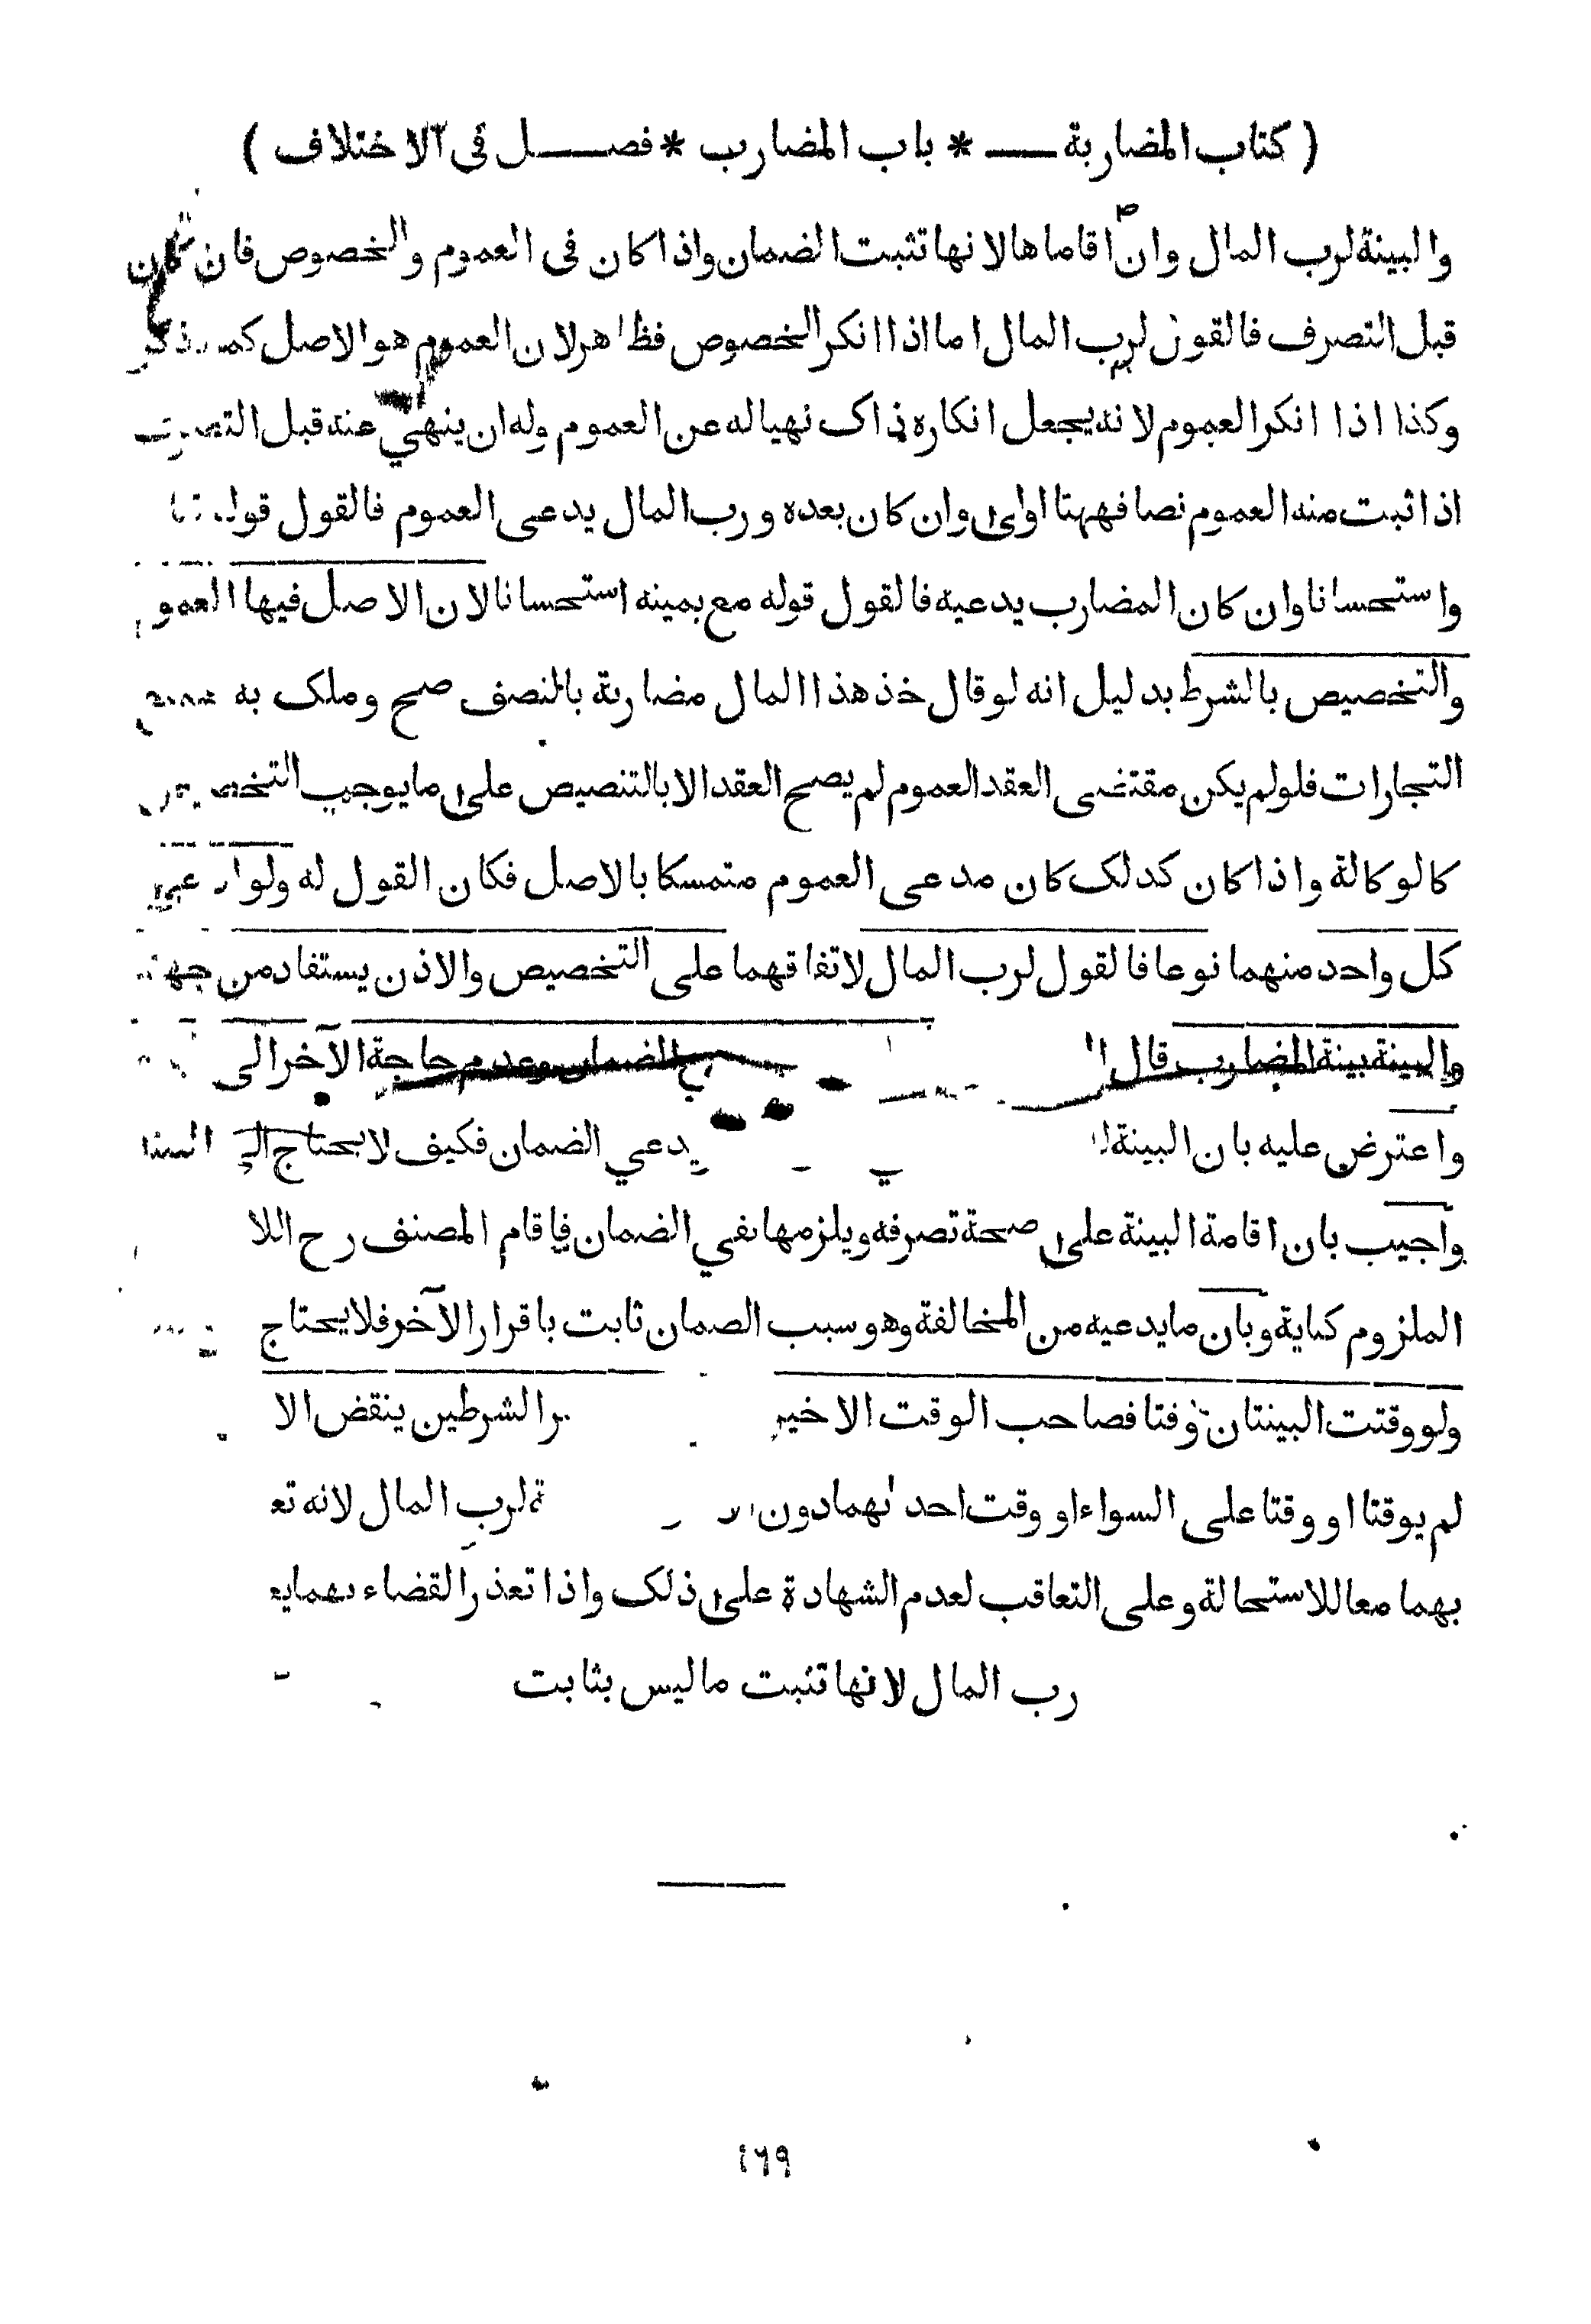 ( كتاب المضاربة — * باب المضارب * فصــل في الاختلاف )
والبينة لرب المال وان اقاماها لانها تثبت الضمان واذا كان فى العموم والخصوص فان كان
قبل التصرف فالقول لرب المال اما اذا انكر الخصوص فظاهر لان العموم هو الاصل كما ذكر
وكذا اذا انكر العموم لانه يجعل انكاره ذاك نهيا له عن العموم وله ان ينهى عنه قبل التصرف
اذا ثبت منه العموم نصا فههنا اولى وان كان بعده ورب المال يدعى العموم فالقول قوله
واستحسانا وان كان المضارب يدعيه فالقول قوله مع يمينه استحسانا لان الاصل فيها العموم
والتخصيص بالشرط بدليل انه لو قال خذ هذا المال مضاربة بالنصف صح وملك به
التجارات فلو لم يكن مقتضى العقد العموم لم يصح العقد الا بالتنصيص على ما يوجب
كالوكالة واذا كان كدلك كان مدعى العموم متمسكا بالاصل فكان القول له ولو
كل واحد منهما نوعا فالقول لرب المال لاتفاقهما على التخصيص والاذن يستفاد من
والبينة بينة المضارب قال الضمان وعدم حاجة الآخر الى
واعترض عليه بان البينة يدعي الضمان فكيف لا يحتاج
واجيب بان اقامة البينة على صحة تصرفه ويلزمها نفي الضمان فاقام المصنف رح
الملزوم كناية وبان ما يدعيه من المخالفة وهو سبب الصمان ثابت باقرار الآخر فلا يحتاج
ولو وقتت البينتان وقتا فصاحب الوقت الاخير الشرطين ينقض
لم يوقتا او وقتا على السواء او وقت احدهما دون لرب المال لانه
بهما معا للاستحالة وعلى التعاقب لعدم الشهادة على ذلك واذا تعذر القضاء بهما
رب المال لانها تثبت ما ليس بثابت
١٦٩